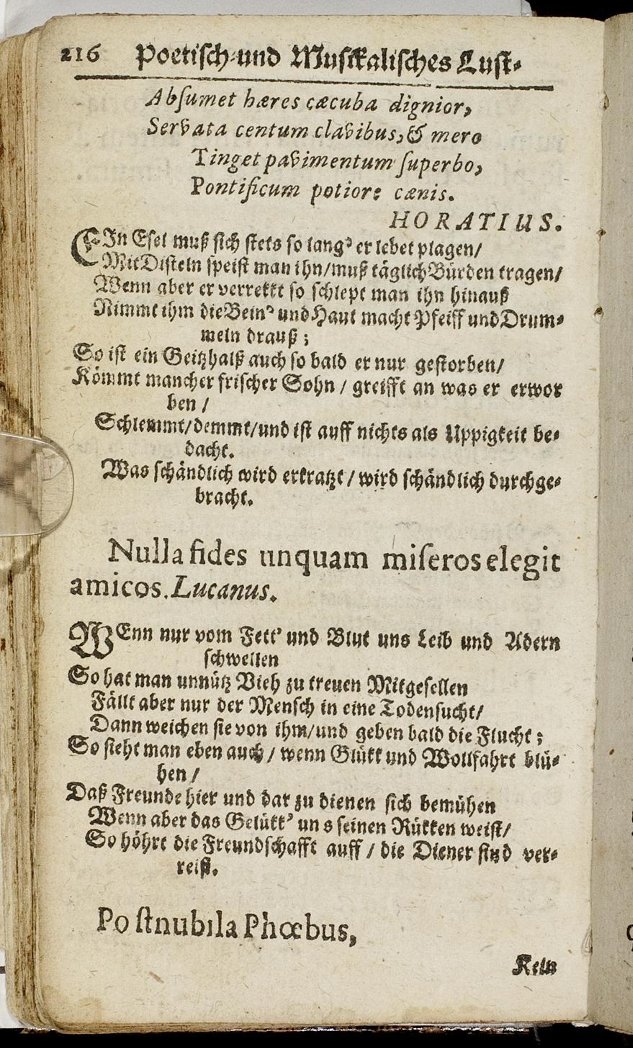 216 Poetisch-und Musikalisches Lust-
Absumet hæres cæcuba dignior,
Servata centum clavibus, & mero
Tinget pavimentum superbo,
Pontificum potiore cænis.
HORATIUS.
EIn Esel muß sich stets so lang' er lebet plagen/
Mit Disteln speist man ihn/muß täglich Bürden tragen/
Wenn aber er verrekkt so schlept man ihn hinauß
Nimmt ihm die Bein' und Haut macht Pfeiff und Drum-
meln drauß;
So ist ein Geitzhalß auch so bald er nur gestorben/
Kömmt mancher frischer Sohn / greifft an was er erwor
ben /
Schlemmt/demmt/und ist auff nichts als Uppigkeit be-
dacht.
Was schändlich wird erkratzt / wird schändlich durchge-
bracht.
Nulla fides unquam miseros elegit
amicos. Lucanus.
WEnn nur vom Fett' und Blut uns Leib und Adern
schwellen
So hat man unnütz Vieh zu treuen Mitgesellen
Fällt aber nur der Mensch in eine Todensucht/
Dann weichen sie von ihm/und geben bald die Flucht;
So sieht man eben auch / wenn Glükk und Wollfahrt blü-
hen /
Daß Freunde hier und dar zu dienen sich bemühen
Wenn aber das Gelükk' uns seinen Rükken weist/
So höhrt die Freundschafft auff / die Diener sind ver-
reist.
Postnubila Phœbus,
Kein